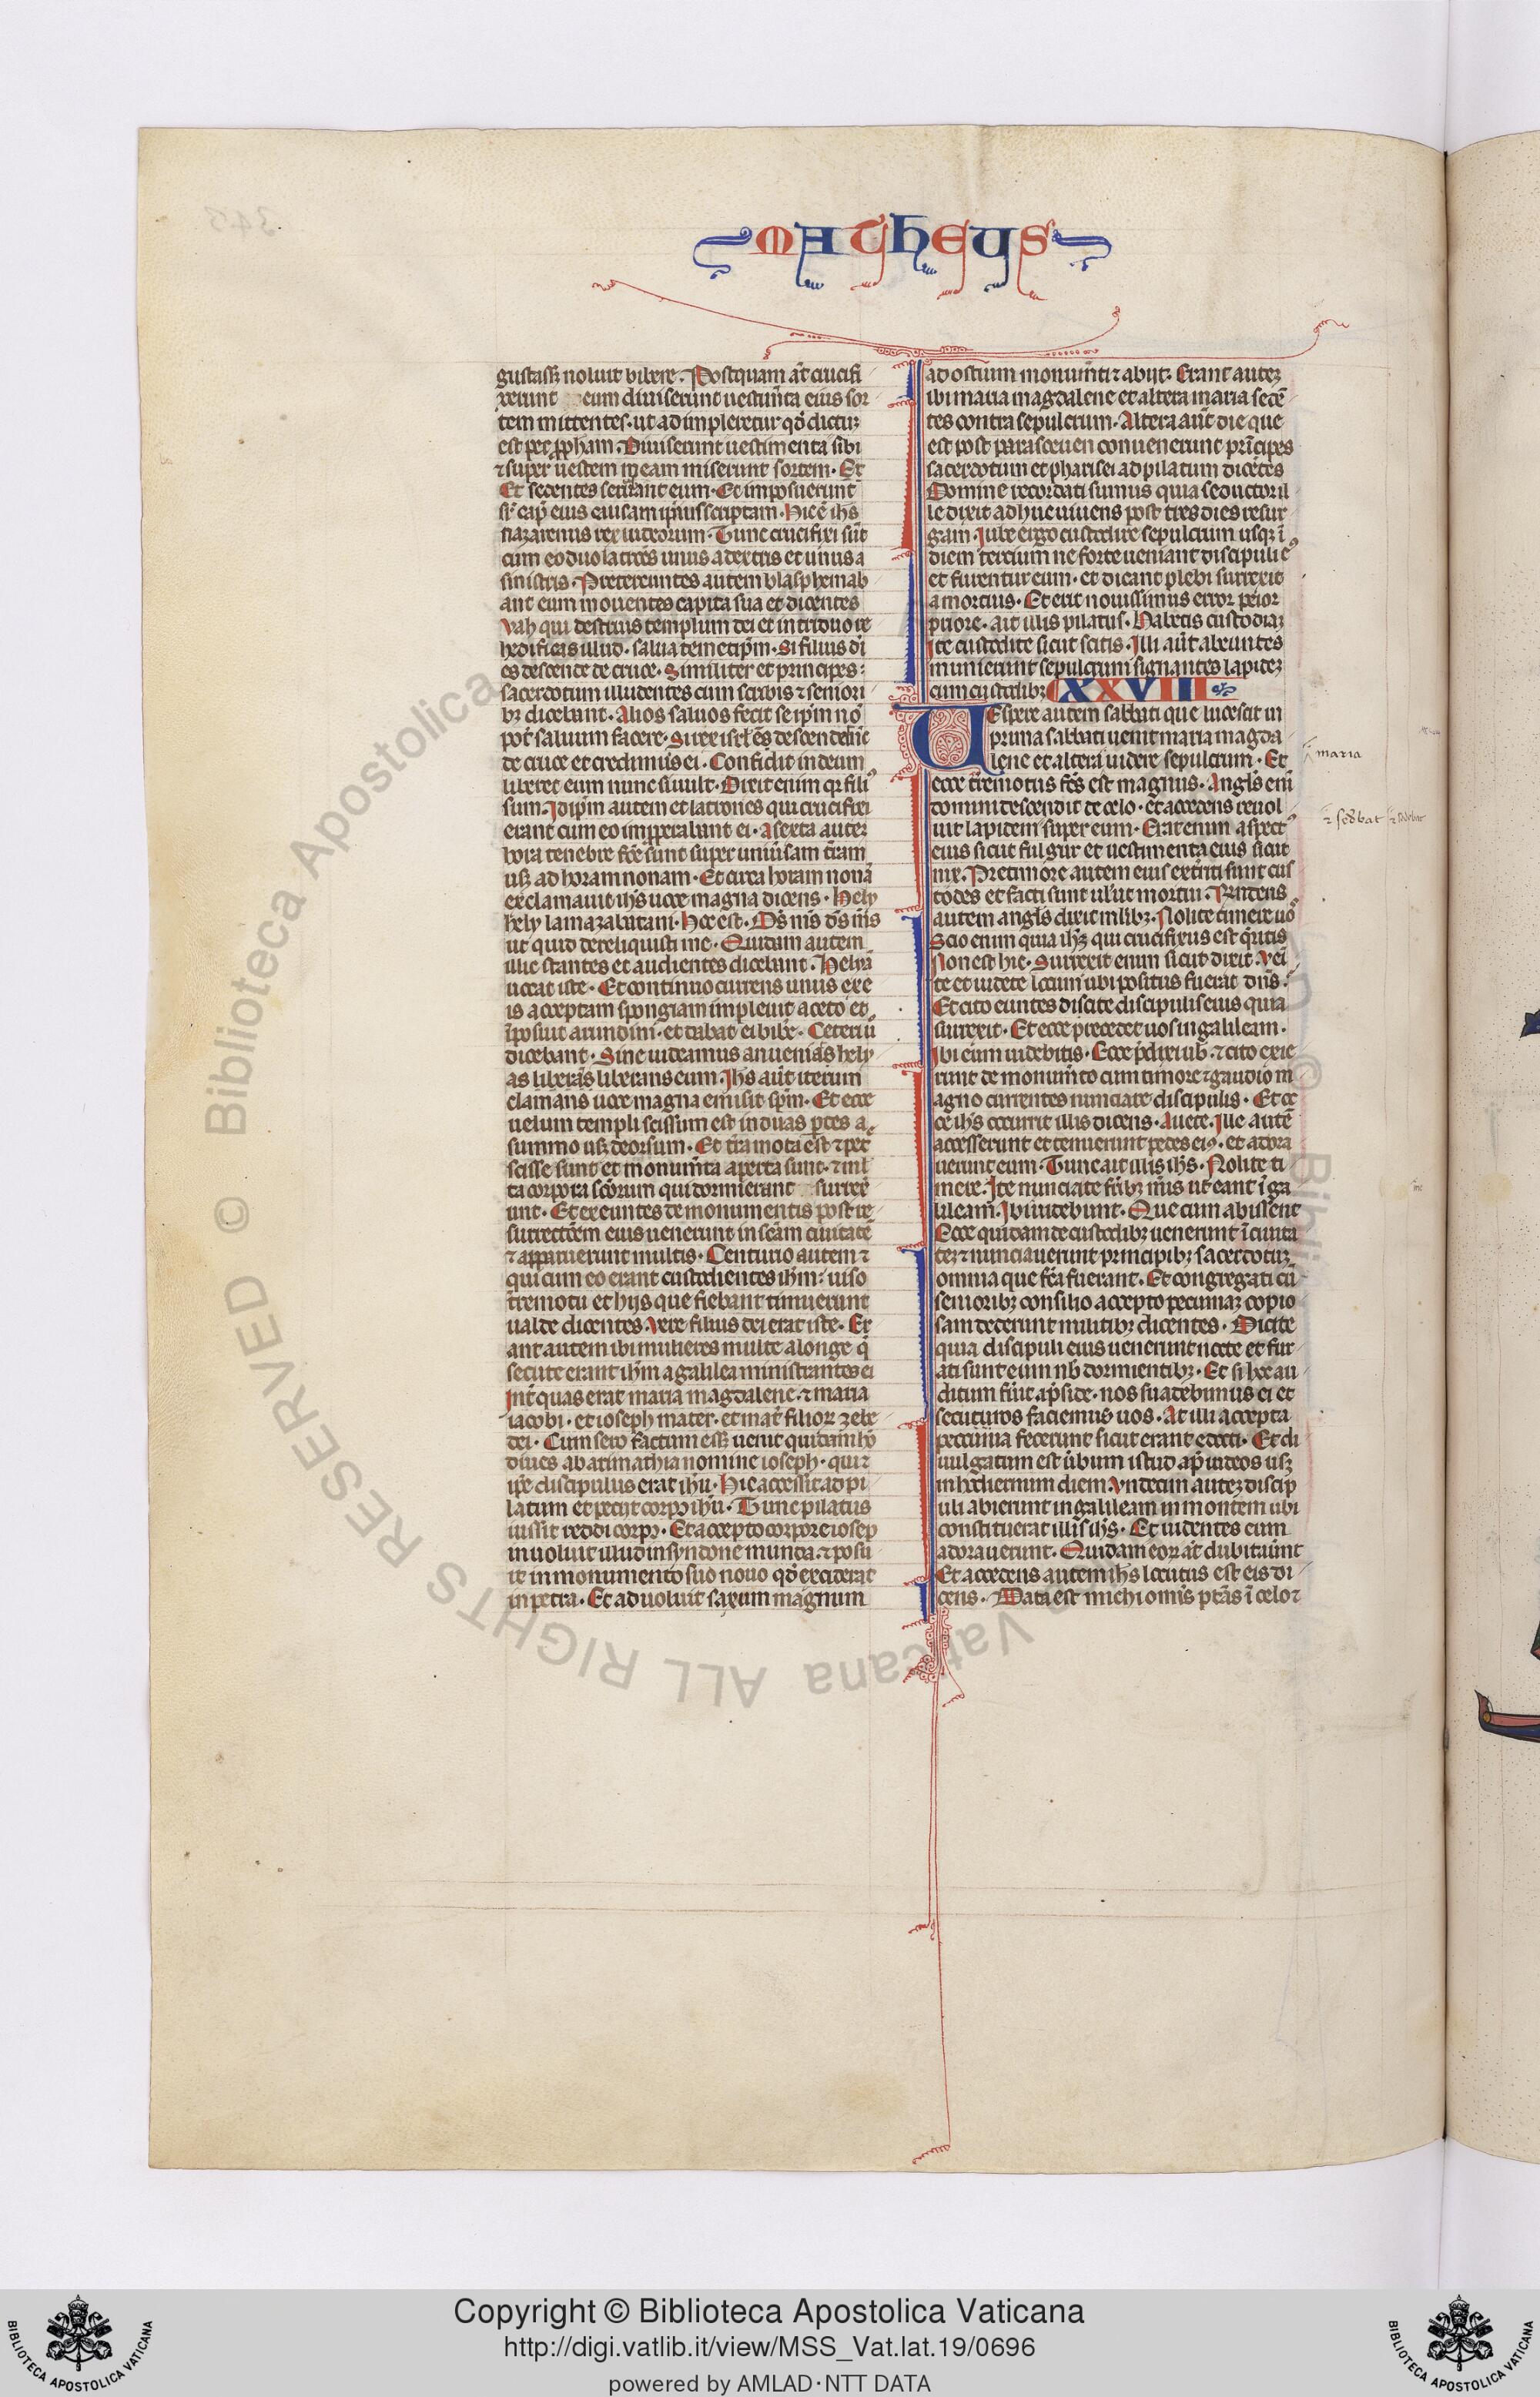 matheus
gustasset noluit bibere. Postquam aũt crucifi
xerunt eum diuiserunt uestim̃ta eius sor
tem mittentes. ut adimpleretur qđ dictuꝫ
est per ꝓpham. Diuiserunt uestimenta sibi
⁊ super uestem meam miserunt sortem. Et
Et sedentes seruabant eum. Et imposuerunt
sr̃ cap̃ eius causam ip̃ius scriptam. Hic ẽ ihs̃
nazarenus rex iudeorum. Tunc crucifixi sũt
cum eo duo latrões unus a dextris et unus a
sinistris. Pretereuntes autem blasphemab
ant eum mouentes capita sua et dicentes
Vah qui destruis templum dei et in triduo re
hedificas illud. salua temetip̃m. Si filius dĩ
es descende de cruce. Similiter et principes
sacerdotum illudentes cum scribis ⁊ seniori
bꝫ dicebant. Alios saluos fecit se ip̃m nõ
pot̃ saluum facere. Si rex isrl̃ ẽ descendat nc̃
de cruce et credimus ei. Confidit in deum
liberet eum nunc si uult. Dixit enim qꝛ fili꯫
sum. Idip̃m autem et latrones qui crucifixi
erant cum eo imꝓperabant ei. A sexta auteꝫ
hora tenebre fc̃e sunt super uniũsam t̃ram
usqꝫ ad horam nonam. Et circa horam nonã
exclamauit ihs̃ uoce magna dicens. Hely
hely lamazabatani. Hoc est. Ds̃ ms̃ ds̃ ms̃
ut quid dereliquisti me. Quidam autem
illic stantes et audientes dicebant. Helyã
uocat iste. Et continuo currens unus ex e
is acceptam spongiam impleuit aceto et
ĩposuit arundini. et dabat ei bibe᷑. Ceteri ũ
dicebant. Sine uideamus an ueniat hely
as liberans eum. Ihs̃ aũt iterum
clamans uoce magna emisit sp̃m. Et ecce
uelum templi scissum est in duas ꝑtes a
summo usqꝫ deorsum. Et t̃ra mota est ⁊ pet̃
scisse sunt et monum̃ta aperta sunt. ⁊ ml̃
ta corpora sc̃orum qui dormierant surrex̃
unt. Et exeuntes de monumentis post re
surrectõem eius uenerunt in sc̃am ciuitatẽ
⁊ apparuerunt multis. Centurio autem ⁊
qui cum eo erant custodientes ihm̃. uiso
t̃remotu et hijs que fiebant timuerunt
ualde dicentes. Vere filius dei erat iste. Er
ant autem ibi mulieres multe a longe q̃
secute erant ihm̃ a galilea ministrantes ei
Int̃ quas erat maria magdalene. ⁊ maria
iacobi. et ioseph mater. et mat̃ filioꝝ zebe
dei. Cum sero factum esꝫ uenit quidam hõ
diues ab arimathia nomine ioseph. qui ⁊
ip̃e discipulus erat ihũ. Hic accessit ad pi
latum et petijt corp꯫ ihũ. Tunc pilatus
iussit reddi corp꯫. Et accepto corpore iosep
inuoluit illud in syndone munda. ⁊ posu
it in monumento suo nouo qđ exciderat
in petra. Et aduoluit saxum magnum
ad ostium monum̃ti ⁊ abijt. Erant auteꝫ
ibi maria magdalene et altera maria sedẽ
tes contra sepulcrum. Altera aũt die que
est post parasceuen conuenerunt prĩcipes
sacerdotum et pharisei ad pilatum dicẽtes
Domine recordati sumus quia seductor il
le dixit adhuc uiuens post tres dies resur
gam. Iube ergo custodire sepulcrum usqꝫ ĩ
diem tercium ne forte ueniant discipuli e꯫
et furentur eum. et dicant plebi surrexit
a mortuis. Et erit nouissimus error peior
priore. ait illis pilatus. Habetis custodiaꝫ
Ite custodite sicut scitis. Illi aũt abeuntes
munierunt sepulcrum signantes lapideꝫ
cum custodibꝫ XXVIII
Uespere autem sabbati que lucescit in
prima sabbati uenit maria magda
lene et altera uidere sepulcrum. Et
maria
ecce t̃remotus fc̃s est magnus. Angl̃s eni᷑
domini descendit de celo. et accedens reuol
uit lapidem super eum. Erat enim aspect꯫
⁊ sedebat
eius sicut fulgur et uestimenta eius sicut
nix. Pre timore autem eius exterriti sunt cus
todes et facti sunt uelut mortui. Rñdens
autem angl̃s dixit mĩlibꝫ. Nolite timere uõ
Scio enim quia ihꝫ qui crucifixus est q̃ritis
Non est hic. Surrexit enim sicut dixit. Veĩ
te et uidete locum ubi positus fuerat dñs.
Et cito euntes dicite discipulis eius quia
surrexit. Et ecce precedet uos in galileam.
Ibi eum uidebitis. Ecce p̃dixi uob̃. ⁊ cito exie
runt de monum̃to cum timore ⁊ gaudio m
agno currentes nunciare discipulis. Et ec
ce ihs̃ occurrit illis dicens. Auete. Ille autẽ
accesserunt et tenuerunt pedes ei꯫. et adora
uerunt eum. Tunc ait illis ihs̃. Nolite ti
mere. Ite nunciate fr̃ibꝫ m̃is ut eant ĩ ga
lileam. Ibi uidebunt. Que cum abissent
Ecce quidam de custodibꝫ uenerunt ĩ ciuita
teꝫ ⁊ nunciauerunt principibꝫ sacerdotuꝫ
omnia que fc̃a fuerant. Et congregati cũ
senioribꝫ consilio accepto pecuniaꝫ copio
sam dederunt militibꝫ dicentes. Dicite
quia discipuli eius uenerunt nocte et fur
ati sunt eum nb̃ dormientibꝫ. Et si hoc au
ditum fũit a p̃side. nos suadebimus ei et
securos faciemus uos. At illi accepta
peccunia fecerunt sicut erant edocti. Et di
uulgatum est ũbum istud ap̃ iudeos usqꝫ
in hodiernum diem. Vndecim auteꝫ discip
uli abierunt in galileam in montem ubi
constituerat illis ihs̃. Et uidentes eum
adorauerunt. Quidam eoꝝ aũt dubitauer̃t
Et accedens autem ihs̃ locutus est eis di
cens. Data est michi omĩs ptãs ĩ celo ⁊
Copyright © Biblioteca Apostolica Vaticana
http://digi.vatlib.it/view/MSS_Vat.lat.19/0696
powered by AMLAD·NTT DATA
BIBLIOTECA APOSTOLICA VATICANA
BIBLIOTECA APOSTOLICA VATICANA
Biblioteca Apostolica Vaticana ALL RIGHTS RESERVED ©